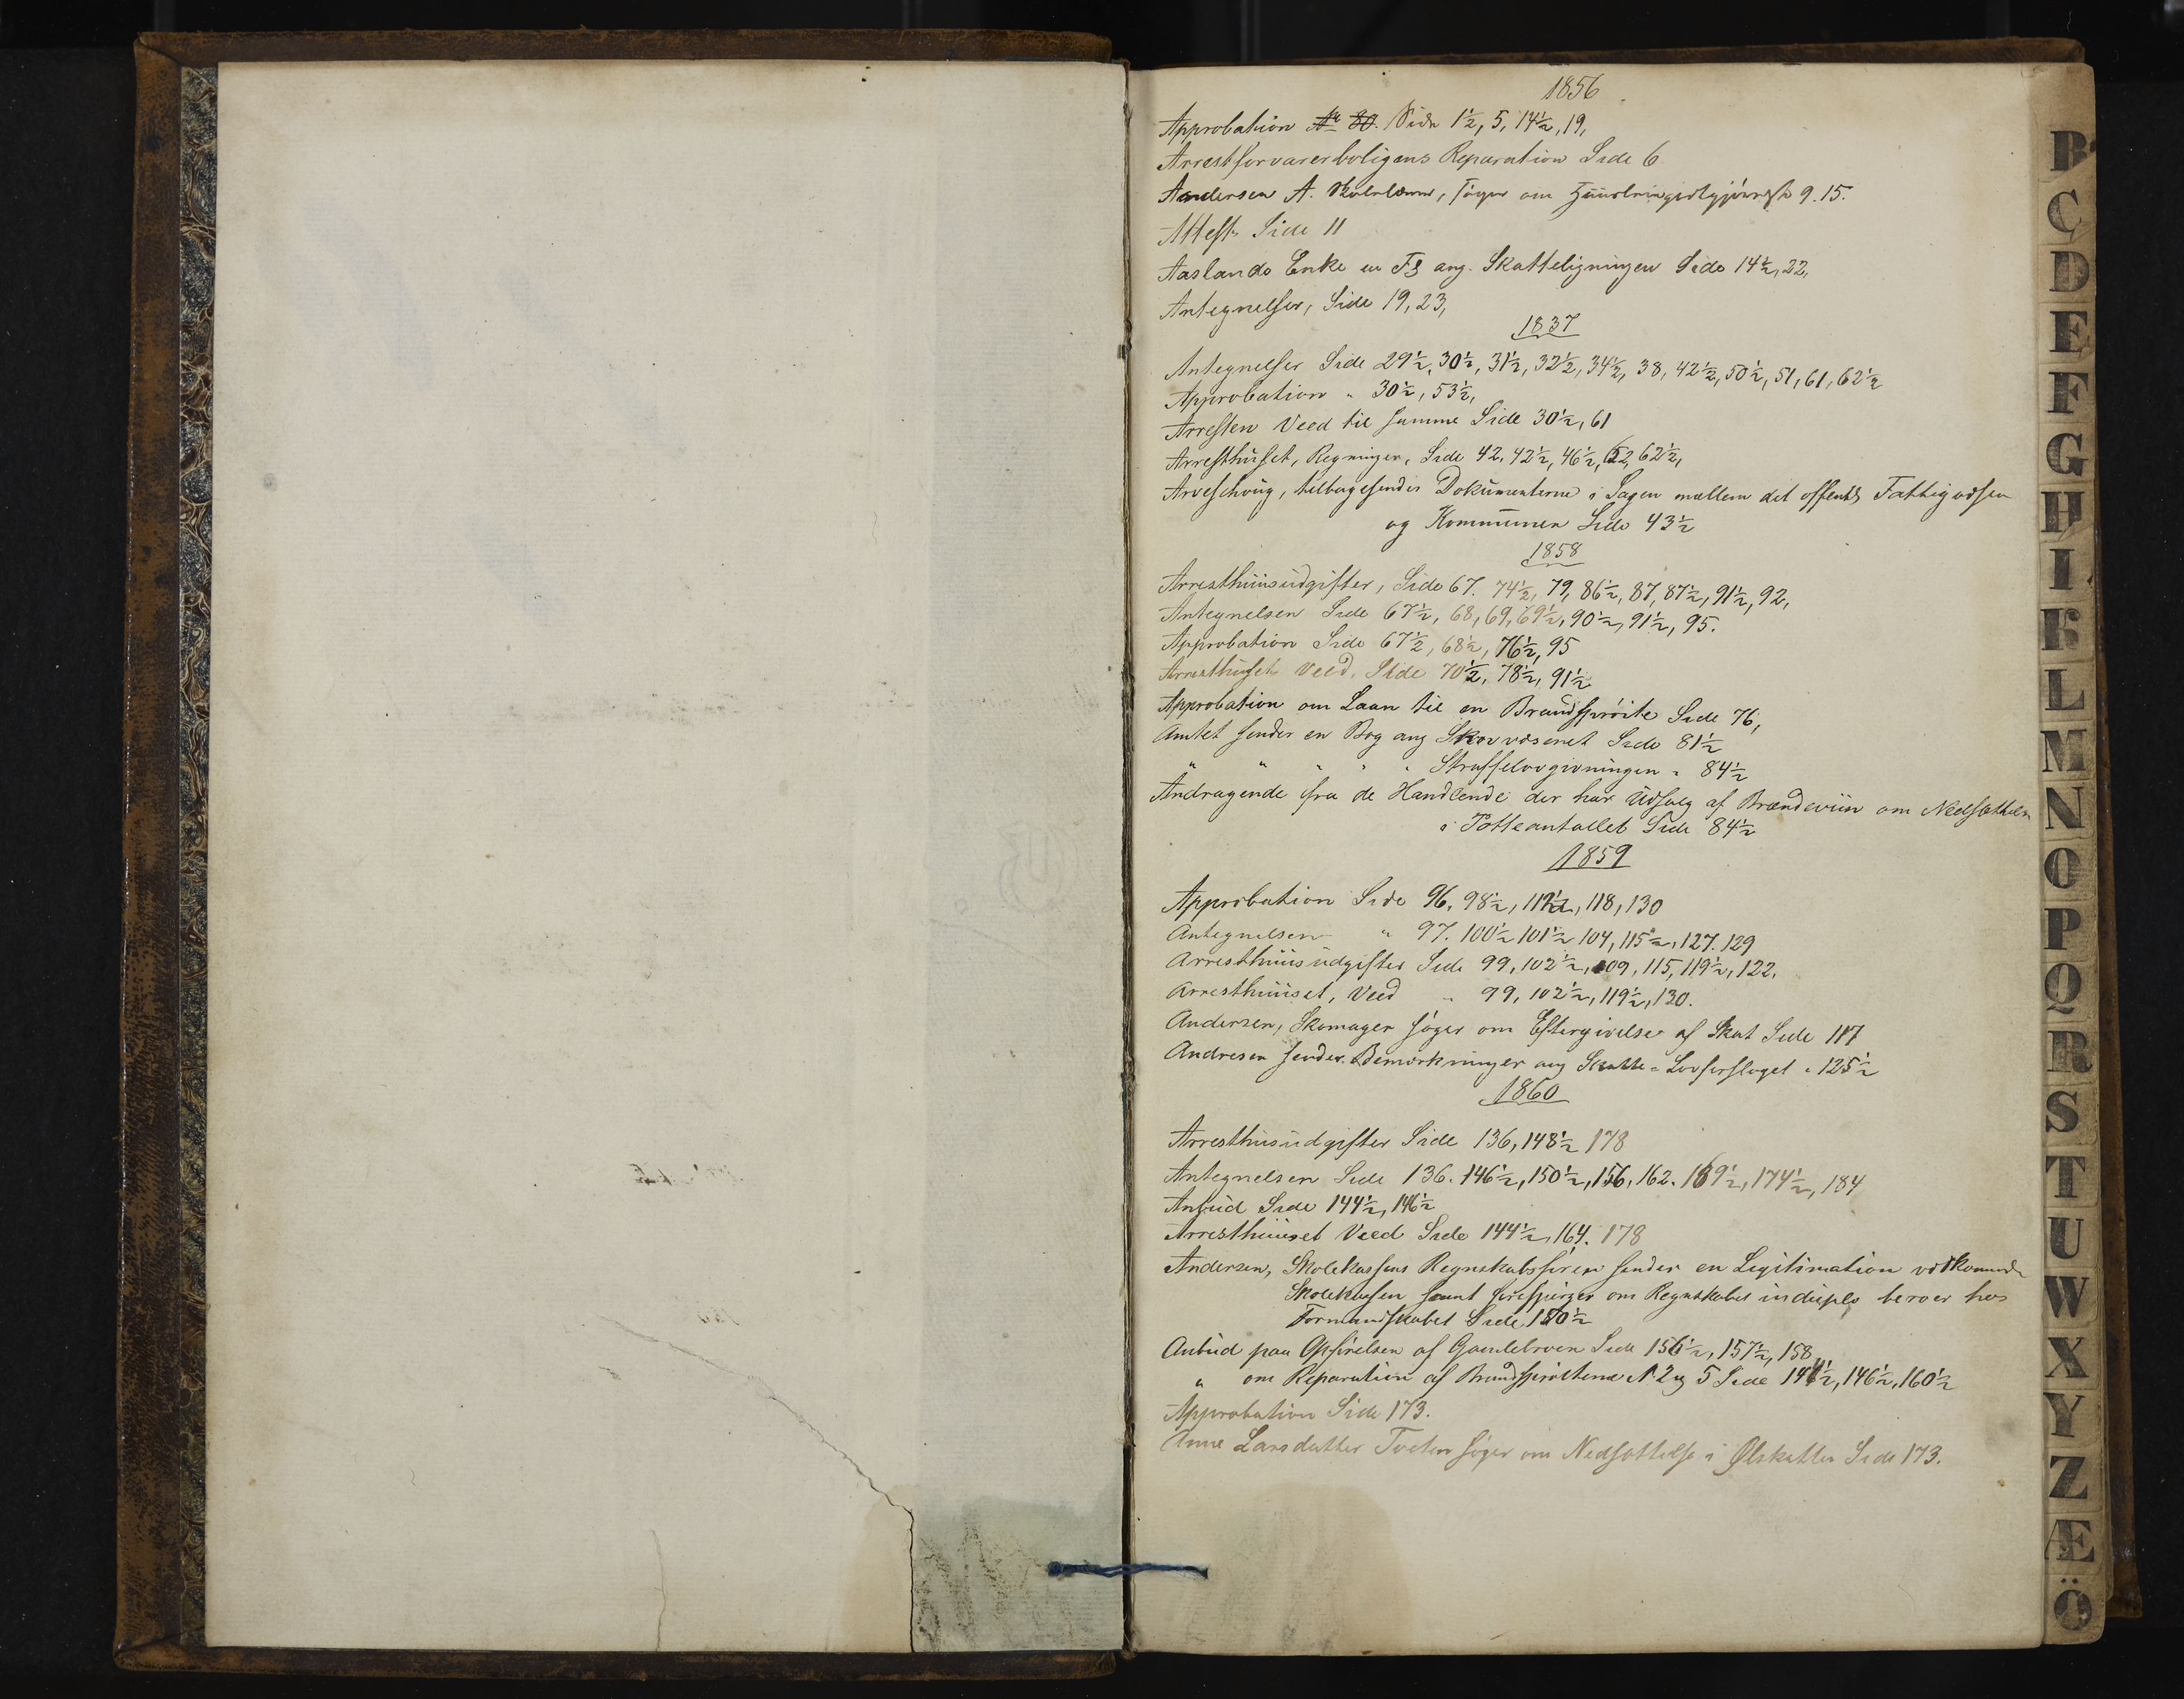 1856
Approbation No 80. Side 1½, 5, 14½, 19,
Arrestforvarerboligens Reparation Side 6
Andersen A. Skolelærer, søger om 9. 15.
Attest Side 11
Aaslands Enke en Fs ang. Skatteligningen Side 14½, 22,
Antegnelser, Side 19, 23,
1837
Antegnelser Side 29½, 30½, 31½, 32½, 34½, 38, 42½, 50½, 51, 61, 62½
Approbation " 30½, 53½,
Arresten Veed til samme Side 30½, 61
Arresthuset, Regninger, Side 42, 42½, 46½, 52, 62½,
Arveschoug, tilbagesender Dokumenterne i Sagen mellem det offentl Fattigvæsen
og Kommunen Side 43½
1858
Arresthuusudgifter, Side 67. 74½, 79, 86½, 87, 87½, 91½, 92,
Antegnelsen Side 67½, 68, 69, 69½, 90½, 91½, 95.
Approbation Side 67½, 68½, 76½, 95
Arresthuset Veed, Side 70½, 78½, 91½
Approbation om Laan til en Brandsprøite Side 76,
Amtet sender en Bog ang Skovvæsenet Side 81½
" " " " " Straffelovgivningen " 84½
Andragende fra de Handlende der har Udsalg af Brændeviin om Nedsættelse
i Potteantallet Side 84½
1859
Approbation Side 96, 98½, 112½, 118, 130
Antegnelsen " 97. 100½ 101½ 104, 115½, 127. 129
Arresthuusudgifter Side 99, 102½, 109, 115, 119½, 122,
Arresthuuset, Veed " 99, 102½, 119½, 130.
Andersen, Skomager søger om Eftergivelse af Skat Side 117
Andresen sender Bemærkninger ang Skatte-Lovforslaget " 125½
1860
Arresthusudgifter Side 136, 148½ 178
Antegnelsen Side 136. 146½, 150½, 156, 162. 169½, 174½, 184
Anbud Side 144½, 146½
Arresthuuset Veed Side 144½, 164. 178
Andersen, Skolekassens Regnskabsfører sender en Legitimation vedkommende
Skolekassen samt forespørger om Regnskabet in duplo beroer hos
Formandskabet Side 150½
Anbud paa Opførelsen af Gamlebroen Side 156½, 157½, 158
" om Reparation af Brandsprøiterne No 2 og 5 Side 144½, 146½, 160½
Approbation Side 173.
Anne Larsdatter Tveten søger om Nedsættelse i Ølskatten Side 173.
B
C
D
E
F
G
H
I
K
L
M
N
O
P
Q
R
S
T
U
W
X
Y
Z
Æ
Ö